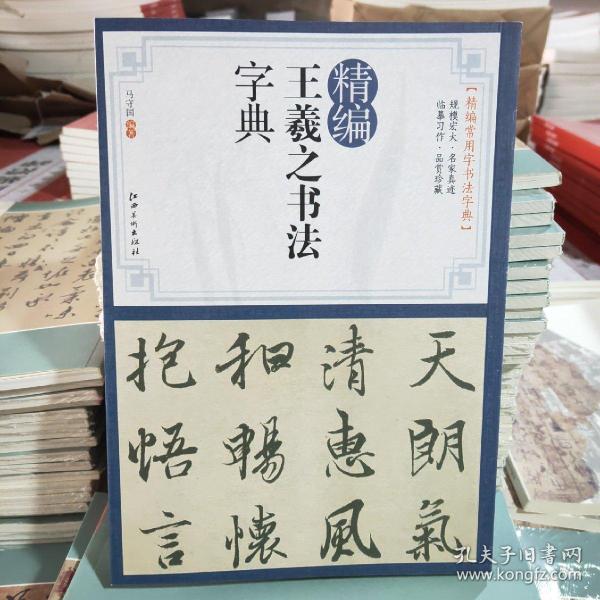 【精编常用字书法字典】
规模宏大·名家真迹
临摹习作·品赏珍藏
精编
王羲之书法
字典
马守国 编著
江西美术出版社
天朗氣
清惠風
和暢懷
抱悟言
孔夫子旧书网
www.kongfz.com